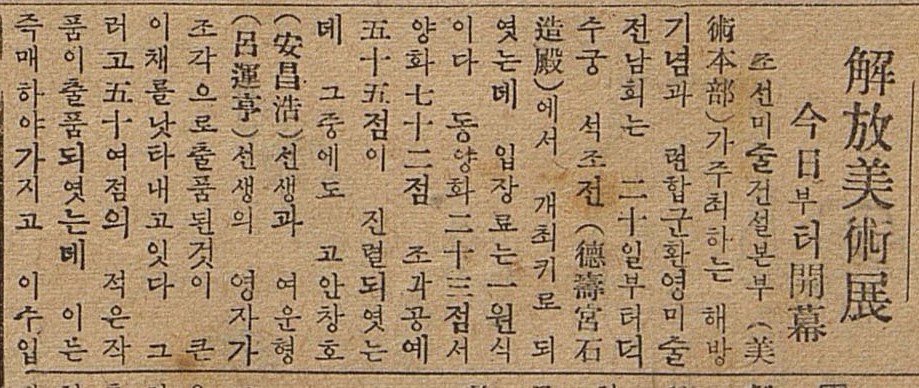 解放美術展
今日부터開幕
조선미술건설본부 (美
術本部)가주최하는 해방
기념과 련합군환영미술
전남회는 二十일부터덕
수궁 석조전 (德壽宮石
造殿)에서 개최키로 되
엿는데 입장료는一원식
이다 동양화二十三점서
양화七十二점 조각공예
五十五점이 진렬되엿는
데 그중에도 고안창호
(安昌浩)선생과 여운형
(呂運亨)선생의 영자가
조각으로출품된것이 큰
이채를낫타내고잇다 그
러고五十여점의 적은작
품이출품되엿는데 이는
즉매하야가지고 이수입